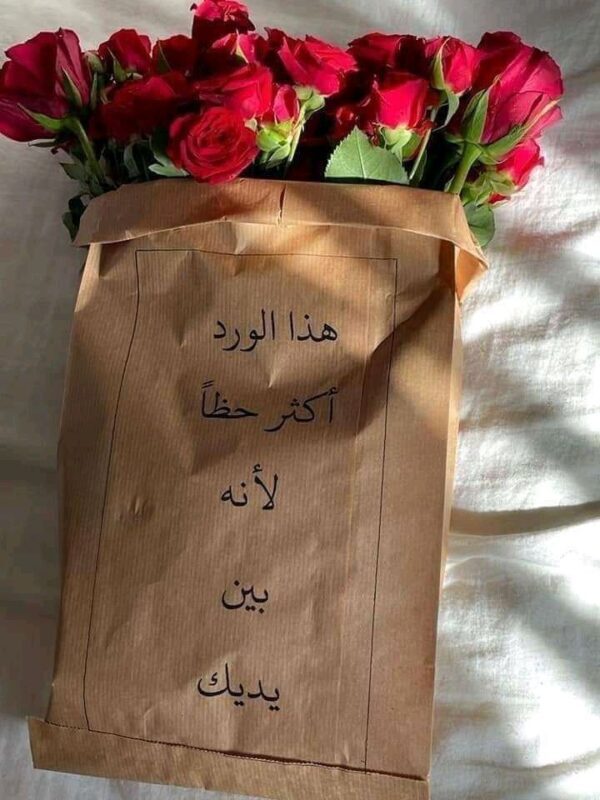 هذا الورد
أكثر حظاً
لأنه
بين
يديك